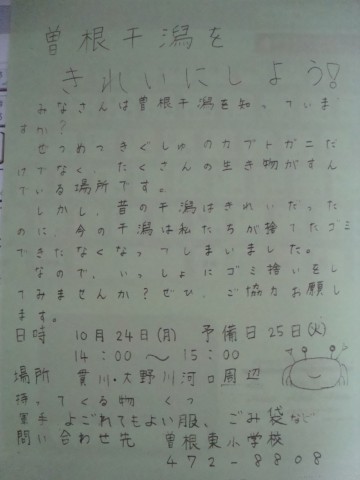 曽根干潟を
きれいにしよう!
みなさんは曽根干潟を知っていま
すか?
ぜつめつきぐしゅのカブトガニだ
けでなく、たくさんの生き物がすん
でいる場所です。
しかし、昔の干潟はきれいだった
のに、今の干潟は私たちが捨てたゴミ
できたなくなってしまいました。
なので、いっしょにゴミ拾いをし
てみませんか?ぜひ、ご協力お願し
ます。
日時 10月24日(月) 予備日25日(火)
14:00〜15:00
場所 貫川・大野川河口周辺
持ってくる物 くつ
軍手 よごれてもよい服、ごみ袋など
問い合わせ先 曽根東小学校
472-8808